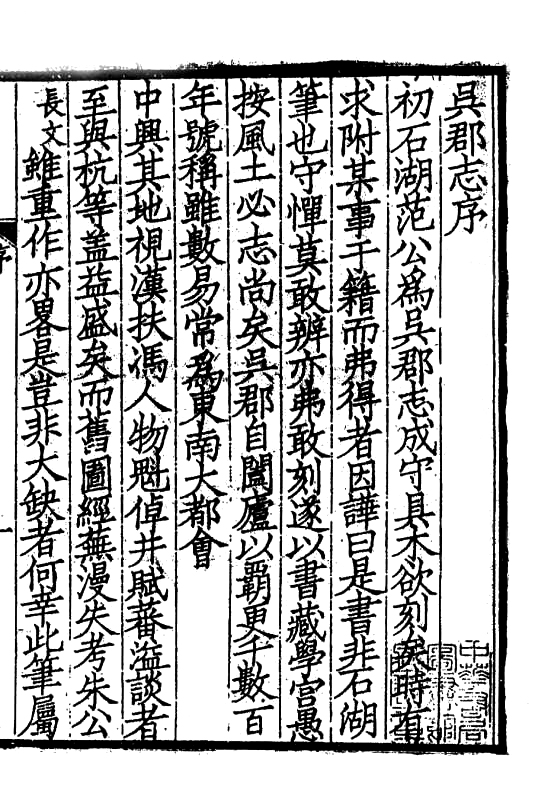 吳郡志序
初石湖范公為吳郡志成守具木欲刻矣時有
求附某事于籍而弗得者因譁曰是書非石湖
筆也守憚莫敢辨亦弗敢刻遂以書藏學宮愚
按風土必志尚矣吳郡自闔廬以霸更千數百
年號稱雖數易常為東南大都會
中興其地視漢扶馮人物魁倬井賦蕃溢談者
至與杭等盖益盛矣而舊圖經蕪漫失考朱公
長文雖重作亦畧是豈非大缺者何幸此筆屬
序
一